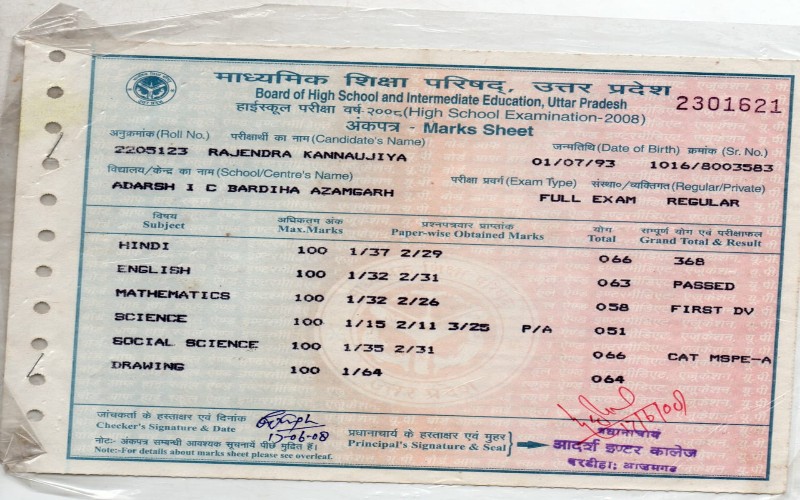 माध्यमिक शिक्षा परिषद्, उत्तर प्रदेश
Board of High School and Intermediate Education, Uttar Pradesh
2301621
हाईस्कूल परीक्षा वर्ष २००८(High School Examination-2008)
अंकपत्र - Marks Sheet
अनुक्रमांक(Roll No.) परीक्षार्थी का नाम(Candidate's Name) जन्मतिथि(Date of Birth) क्रमांक (Sr. No.)
2205123 RAJENDRA KANNAUJIYA 01/07/93 1016/8003583
विद्यालय/केन्द्र का नाम(School/Centre's Name) परीक्षा प्रवर्ग(Exam Type) संस्था०/व्यक्तिगत(Regular/Private)
ADARSH I C BARDIHA AZAMGARH FULL EXAM REGULAR
विषय अधिकतम अंक प्रश्नपत्रवार प्राप्तांक योग सम्पूर्ण योग एवं परीक्षाफल
Subject Max.Marks Paper-wise Obtained Marks Total Grand Total & Result
HINDI 100 1/37 2/29 066 368
ENGLISH 100 1/32 2/31 063 PASSED
MATHEMATICS 100 1/32 2/26 058 FIRST DV
SCIENCE 100 1/15 2/11 3/25 P/A 051
SOCIAL SCIENCE 100 1/35 2/31 066 CAT MSPE-A
DRAWING 100 1/64 064
जांचकर्ता के हस्ताक्षर एवं दिनांक
Checker's Signature & Date
17-06-08
प्रधानाचार्य के हस्ताक्षर एवं मुहर
Principal's Signature & Seal
प्रधानाचार्य
आदर्श इण्टर कालेज
बरडीहा, आजमगढ
नोट:- अंकपत्र सम्बन्धी आवश्यक सूचनायें पीछे मुद्रित हैं।
Note:-For details about marks sheet please see overleaf.